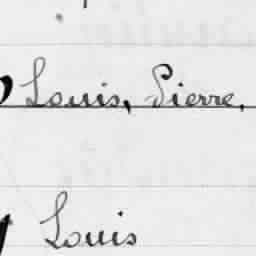 Louis, Pierre,
Louis